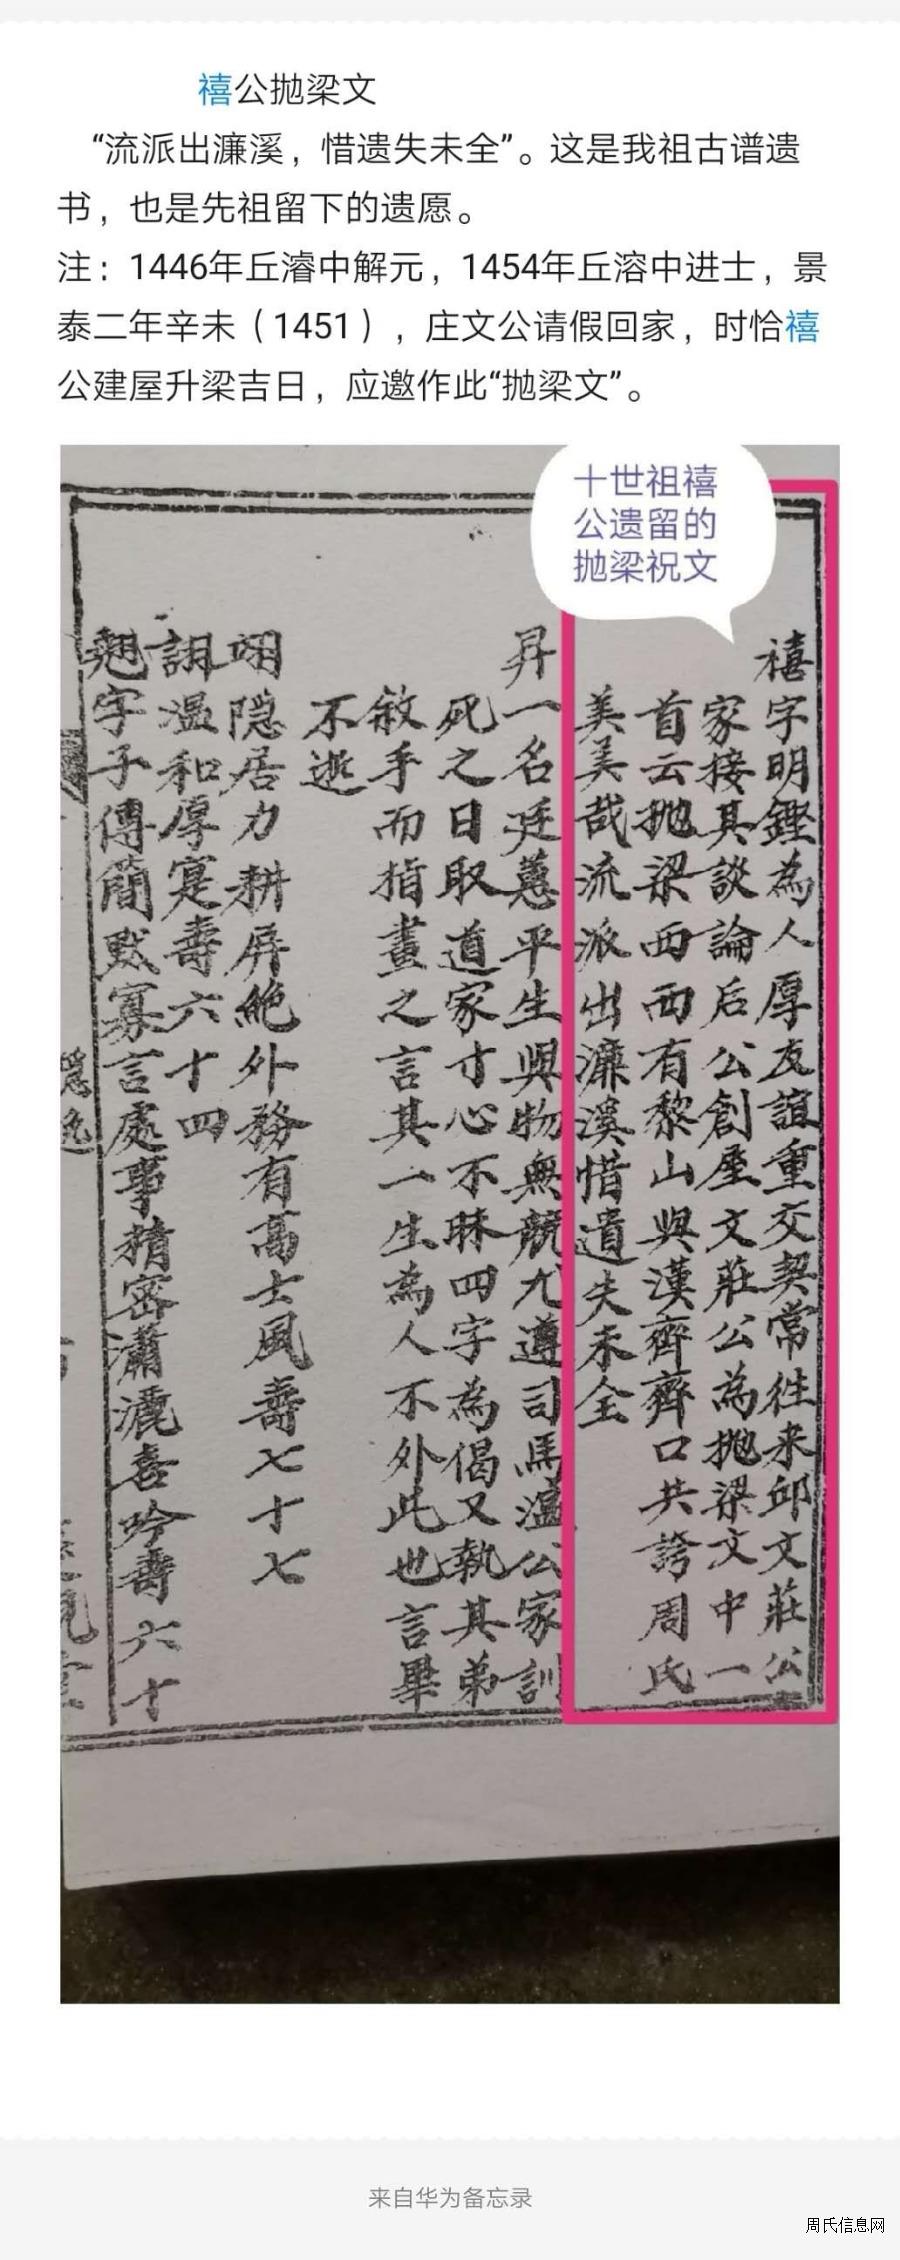 禧公抛梁文
“流派出濂溪，惜遗失未全”。这是我祖古谱遗
书，也是先祖留下的遗愿。
注：1446年丘濬中解元，1454年丘溶中进士，景
泰二年辛未（1451），庄文公请假回家，时恰禧
公建屋升梁吉日，应邀作此“抛梁文”。
十世祖禧
公遗留的
抛梁祝文
禧字明鏗為人厚友誼重交契常徃来邱文莊公
家接其談論后公創壓文莊公為抛梁文中一
首云抛梁西西有黎山與漢齊齊口共誇周氏
美美哉流派出濂溪惜遺失未全
昇一名廷蕙平生與物無競尤遵司馬溫公家訓
死之日取道家寸心不昧四字為偈又執其弟
敘手而指畫之言其一生為人不外此也言畢
不逝
翊隠居力耕屏絶外務有高士風壽七十七
詡温和厚寔壽六十四
翘字子傳簡默寡言處事精密瀟灑喜吟壽六十
来自华为备忘录
周氏信息网